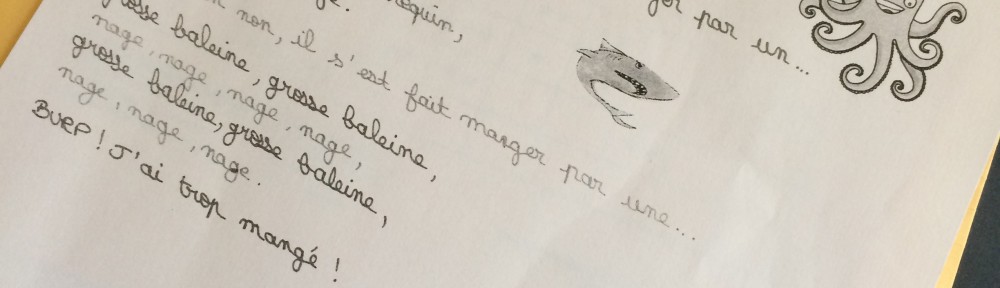 requin,
par un...
non, il s'est fait manger par une...
grosse baleine, grosse baleine,
nage, nage, nage, nage,
grosse baleine, grosse baleine,
nage, nage, nage.
BURP ! J'ai trop mangé !